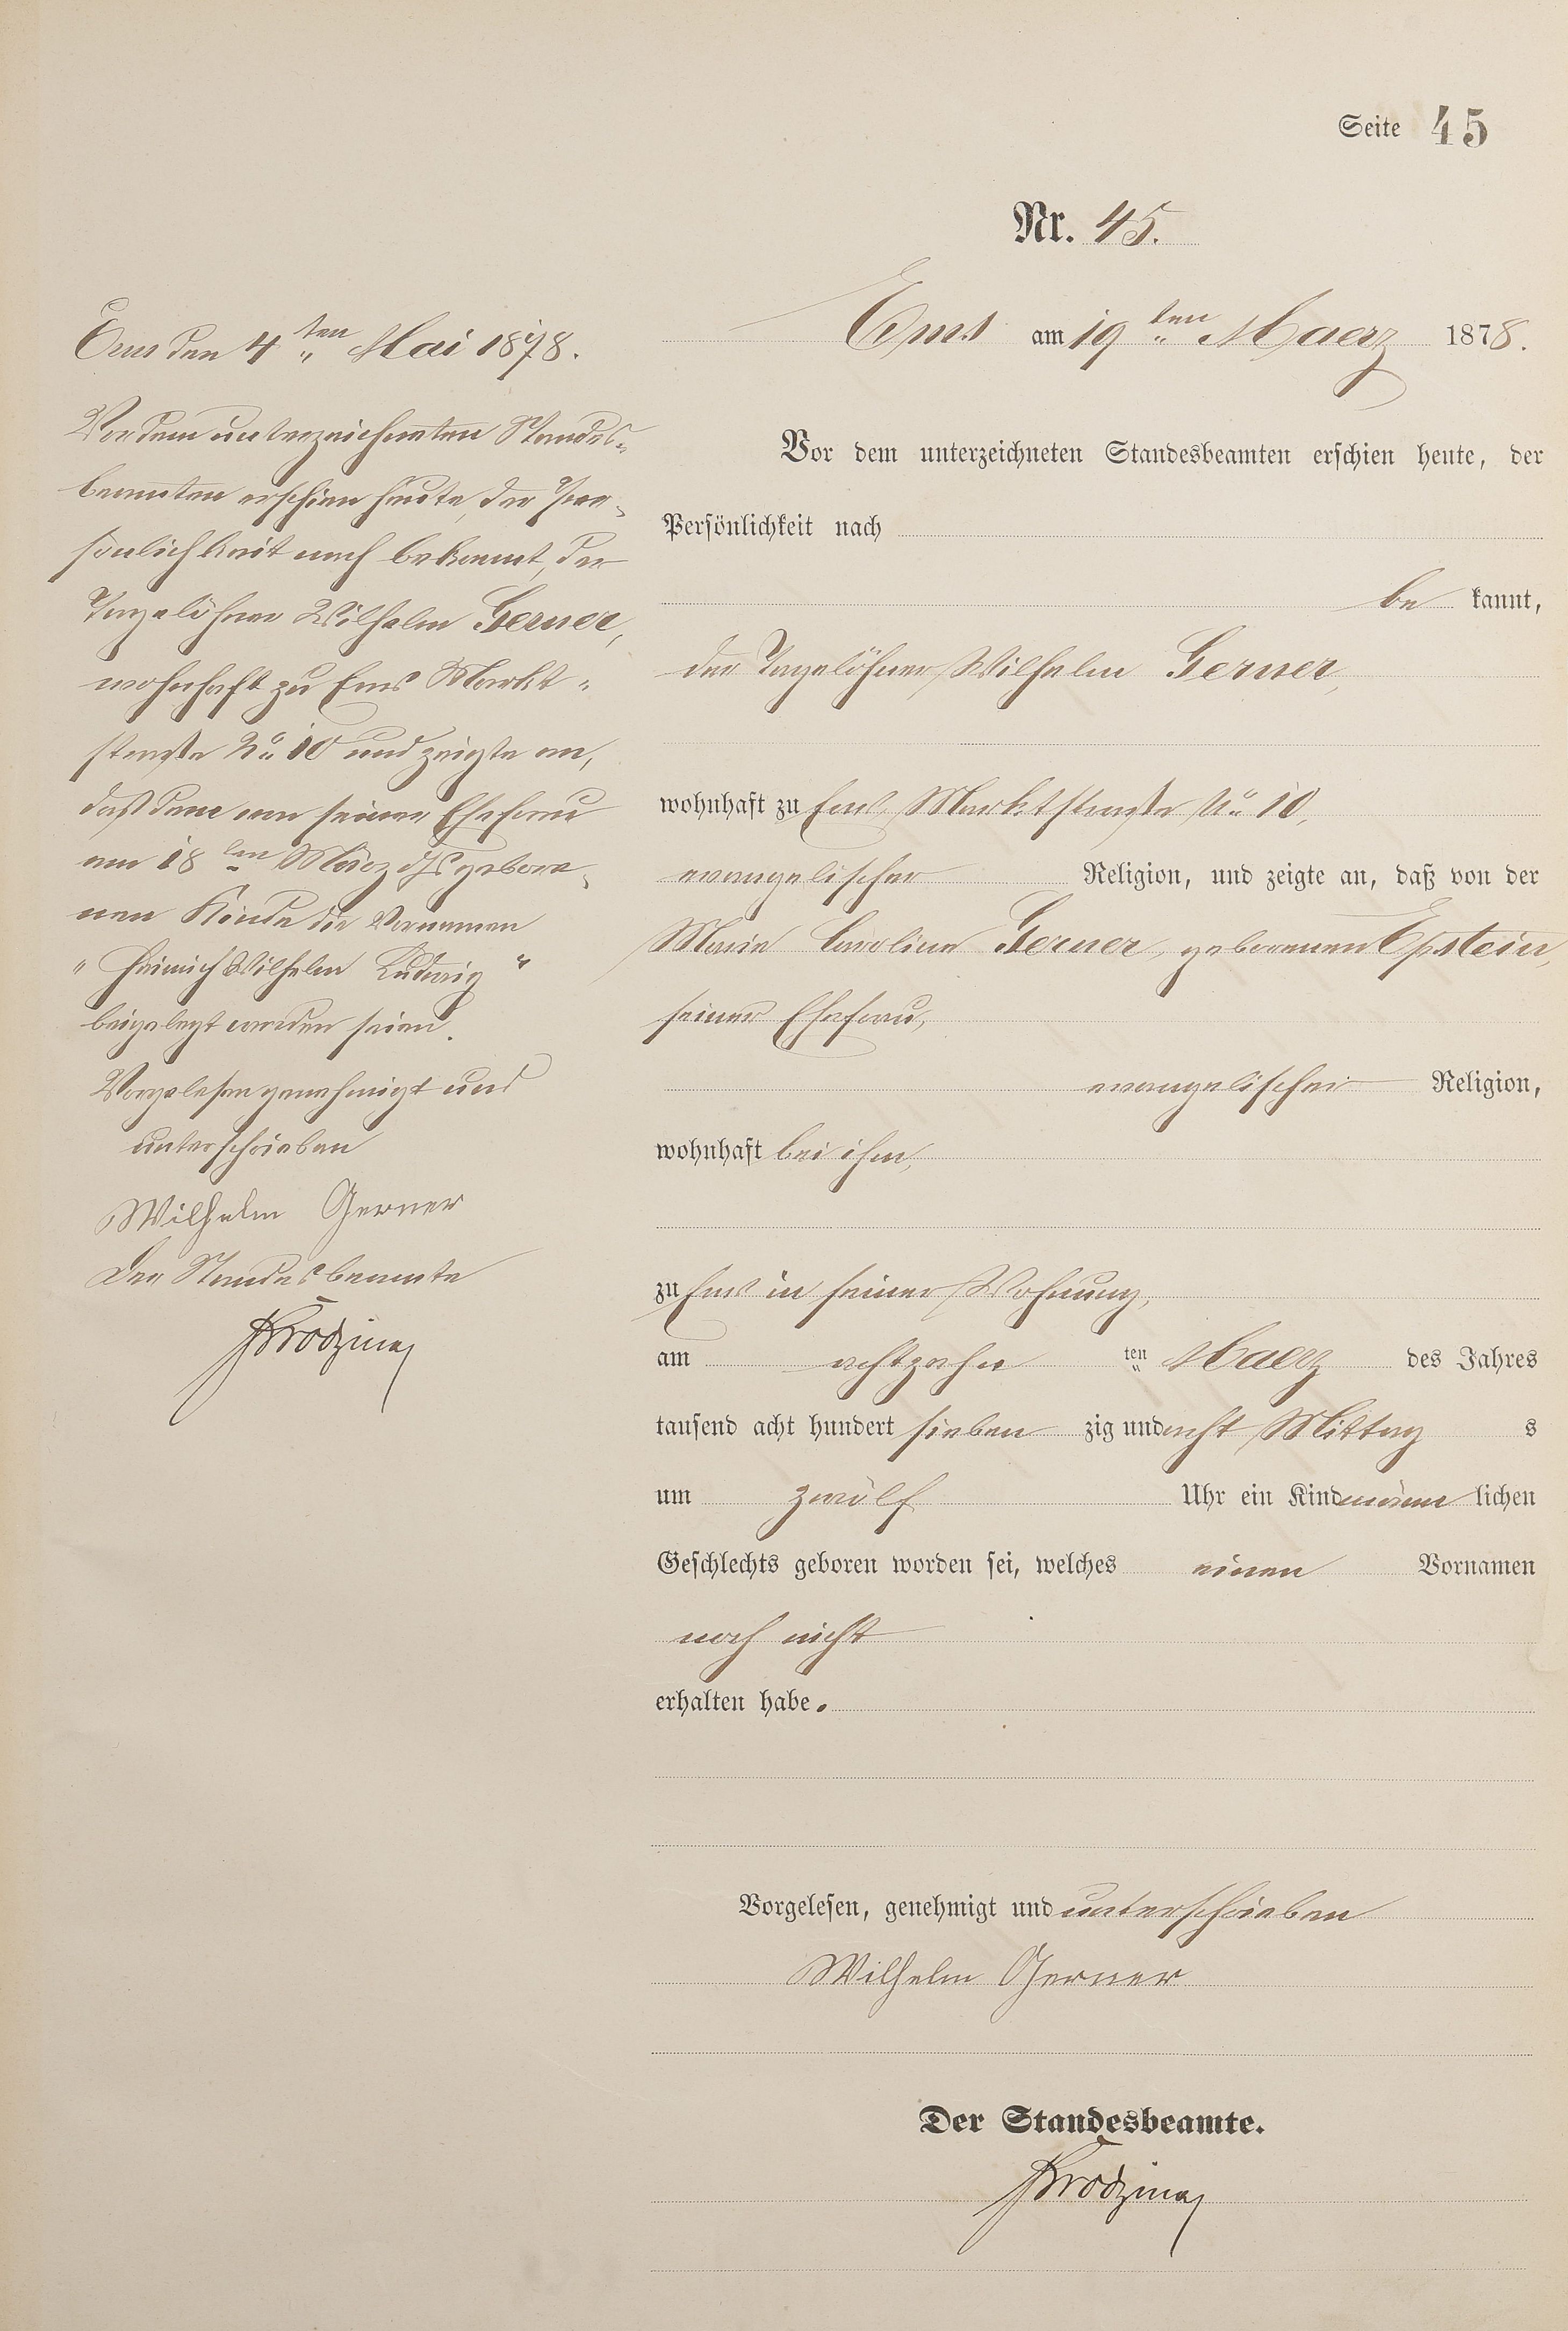 Seite 45
Nr. 45.
Ems am 19ten Maerz 1878.
Vor dem unterzeichneten Standesbeamten erschien heute, der
Persönlichkeit nach
be kannt,
der Tagelöhner Wilhelm Gerner,
wohnhaft zu Ems Marktstraße No 10,
evangelischer Religion, und zeigte an, daß von der
Marie Caroline Gerner, geborenen Epstein,
seiner Ehefrau,
evangelischer Religion,
wohnhaft bei ihm,
zu Ems in seiner Wohnung,
am achtzehn ten Maerz des Jahres
tausend acht hundert sieben zig und acht Mittag s
um zwölf Uhr ein Kind männ lichen
Geschlechts geboren worden sei, welches einen Vornamen
noch nicht
erhalten habe.
Vorgelesen, genehmigt und unterschrieben
Wilhelm Gerner
Der Standesbeamte.
Ems den 4ten Mai 1878.
Vor dem unterzeichneten Standes-
beamten erschien heute, der Per-
sönlichkeit nach bekannt, der
Tagelöhner Wilhelm Gerner,
wohnhaft zu Ems Markt-
straße No 10 und zeigte an,
daß dem von seiner Ehefrau
am 18ten März geбore-
nen Kinde die Vornamen
"Heinrich Wilhelm Ludwig"
beigelegt worden seien.
Vorgelesen genehmigt und
unterschrieben
Wilhelm Gerner
Der Standesbeamte